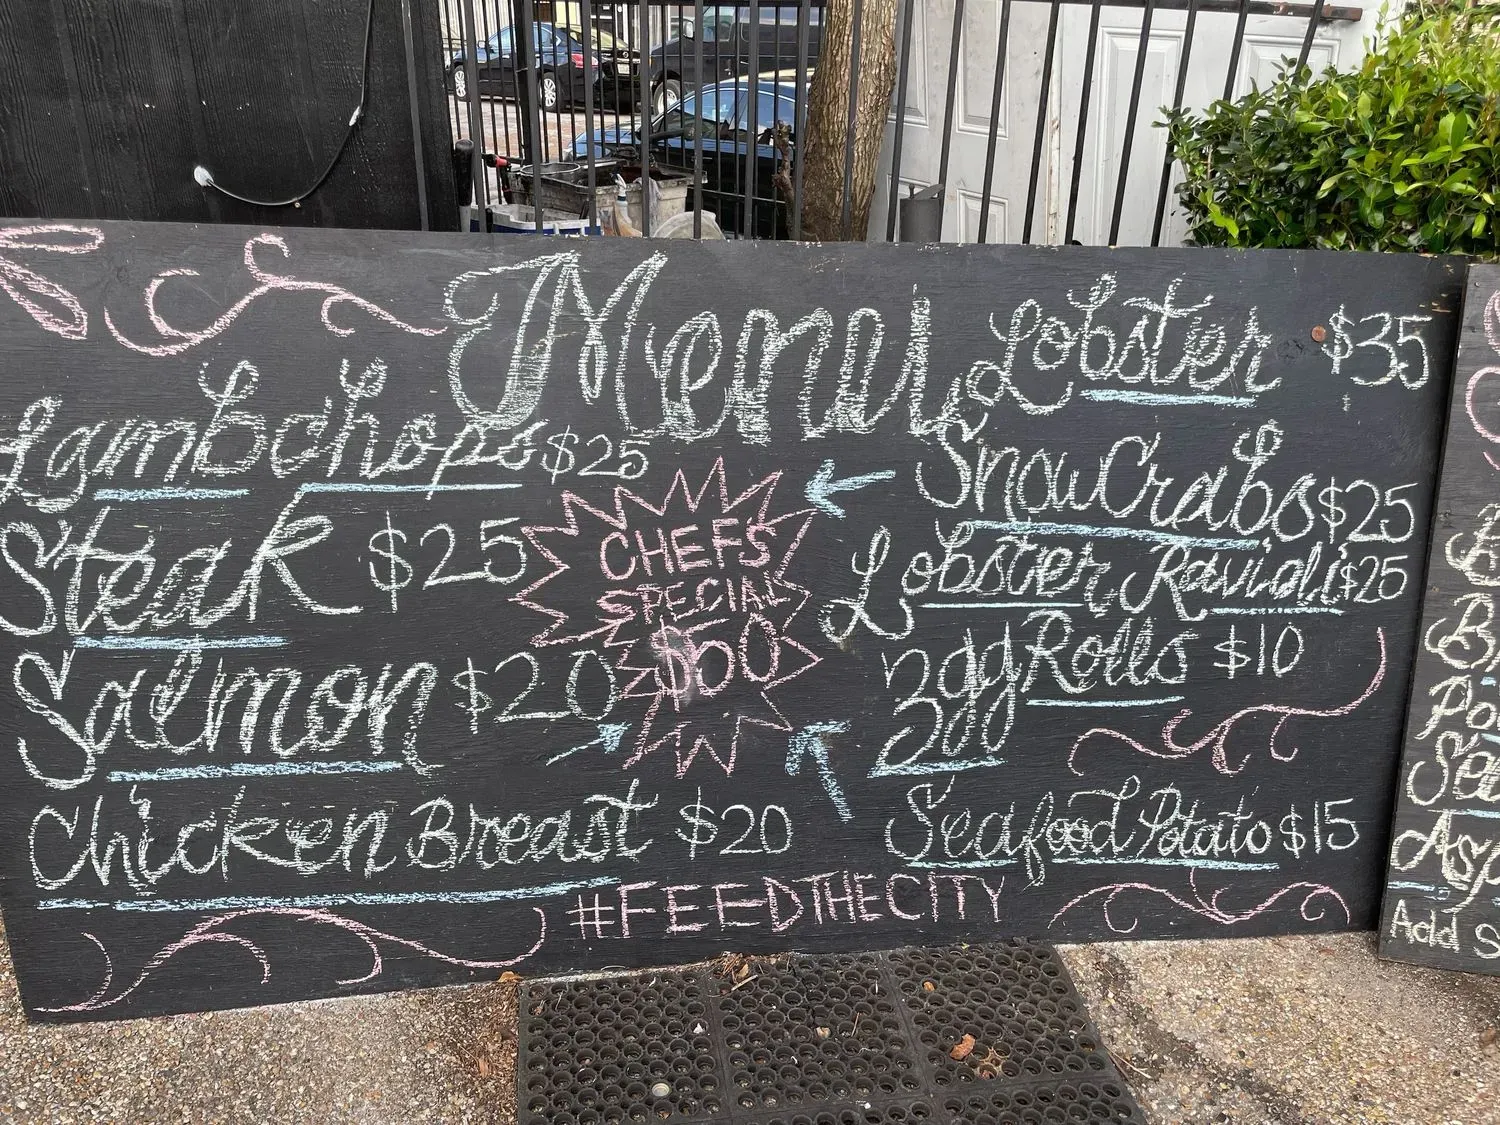 Menu
Lambchops $25
Steak $25
Salmon $20
Chicken Breast $20
CHEFS
SPECIAL
$60
Lobster $35
Snow Crabs $25
Lobster Ravioli $25
Egg Rolls $10
Egg
Seafood Potato $15
#FEEDTHECITY
Add